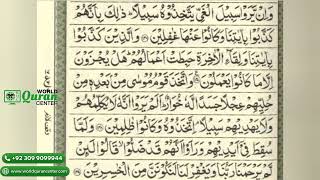 وَاِنْ يَّرَوْا سَبِيْلَ الْغَيِّ يَتَّخِذُوْهُ سَبِيْلًا ذٰلِكَ بِاَنَّهُمْ
كَذَّبُوْا بِاٰيٰتِنَا وَكَانُوْا عَنْهَا غٰفِلِيْنَ وَالَّذِيْنَ كَذَّبُوْا
بِاٰيٰتِنَا وَلِقَآءِ الْاٰخِرَةِ حَبِطَتْ اَعْمَالُهُمْ هَلْ يُجْزَوْنَ
اِلَّا مَا كَانُوْا يَعْمَلُوْنَ وَاتَّخَذَ قَوْمُ مُوْسٰى مِنْۢ بَعْدِهٖ مِنْ
حُلِيِّهِمْ عِجْلًا جَسَدًا لَّهٗ خُوَارٌ اَلَمْ يَرَوْا اَنَّهٗ لَا يُكَلِّمُهُمْ
وَلَا يَهْدِيْهِمْ سَبِيْلًا اِتَّخَذُوْهُ وَكَانُوْا ظٰلِمِيْنَ وَلَمَّا
سُقِطَ فِيْٓ اَيْدِيْهِمْ وَرَاَوْا اَنَّهُمْ قَدْ ضَلُّوْا قَالُوْا لَئِنْ
لَّمْ يَرْحَمْنَا رَبُّنَا وَيَغْفِرْ لَنَا لَنَكُوْنَنَّ مِنَ الْخٰسِرِيْنَ
WORLD
Quran
CENTER
+92 309 9099944
www.worldqurancenter.com